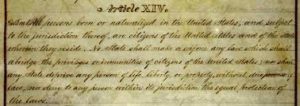 Article XIV.
All persons born or naturalized in the United States, and subject
to the jurisdiction thereof, are citizens of the United States and of the State
wherein they reside. No State shall make or enforce any law which shall
abridge the privileges or immunities of citizens of the United States; nor shall
any State deprive any person of life, liberty, or property, without due process of
law; nor deny to any person within its jurisdiction the equal protection of
the laws.